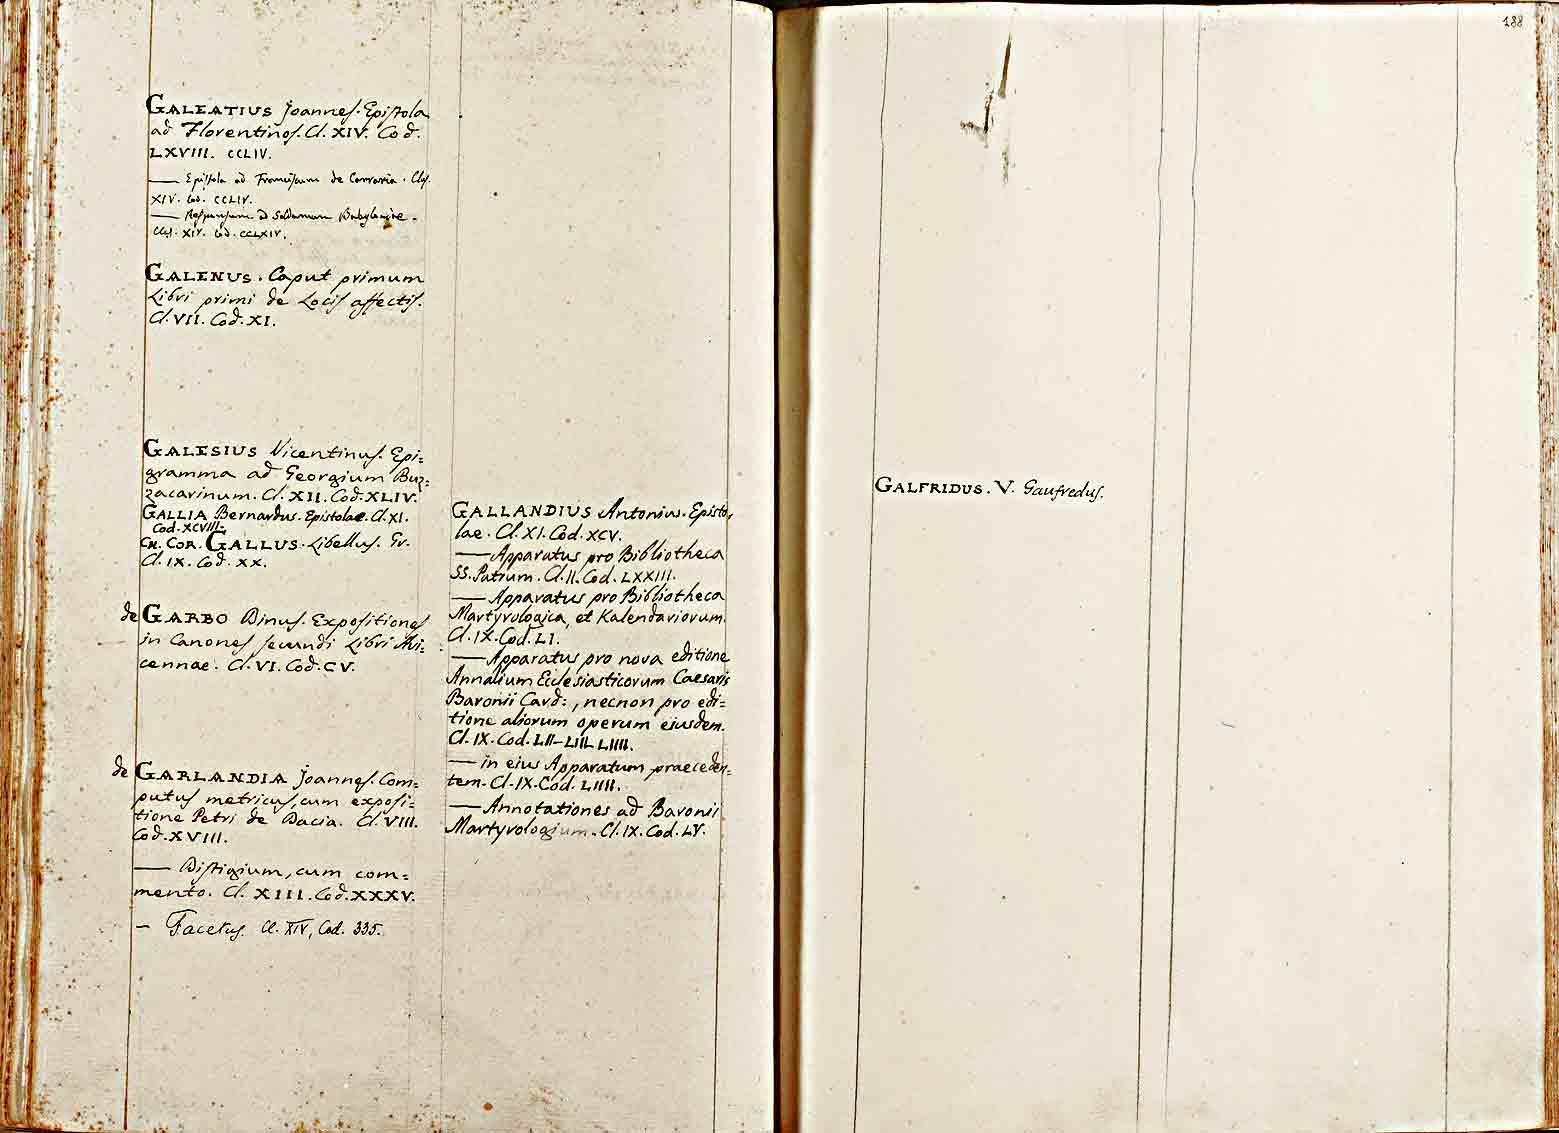 GALEATIUS Joannes. Epistola
ad Florentinos. Cl. XIV. Cod.
LXVIII. CCLIV.
— Epistola ad Franciscum de Carraria. Clas.
XIV. Cod. CCLIV.
— Responsum ad Soldanum Babyloniae.
Clas. XIV. Cod. CCLXIV.
GALENUS. Caput primum
Libri primi de Locis affectis.
Cl. VII. Cod. XI.
GALESIUS Vicentinus. Epi=
gramma ad Georgium Buz=
zacarinum. Cl. XII. Cod. XLIV.
GALLIA Bernardus. Epistolae. Cl. XI.
Cod. XCVIII.
CN. COR. GALLUS. Libellus. Gr.
Cl. IX. Cod. XX.
de GARBO Dinus. Expositiones
in Canones secundi Libri Avi=
cennae. Cl. VI. Cod. CV.
de GARLANDIA Joannes. Com=
putus metricus, cum exposi=
tione Petri de Dacia. Cl. VIII.
Cod. XVIII.
— Distigium, cum com=
mento. Cl. XIII. Cod. XXXV.
— Facetus. Cl. XIV, Cod. 335.
GALLANDIUS Antonius. Episto,
lae. Cl. XI. Cod. XCV.
— Apparatus pro Bibliotheca
SS. Patrum. Cl. II. Cod. LXXIII.
— Apparatus pro Bibliotheca
Martyrologica, et Kalendariorum.
Cl. IX. Cod. LI.
— Apparatus pro nova editione
Annalium Ecclesiasticorum Caesaris
Baronii Card:, necnon pro edi=
tione aliorum operum eiusdem.
Cl. IX. Cod. LII-LIII. LIIII.
— in eius Apparatum praeceden=
tem. Cl. IX. Cod. LIIII.
— Annotationes ad Baronii
Martyrologium. Cl. IX. Cod. LV.
188
GALFRIDUS. V. Gaufredus.